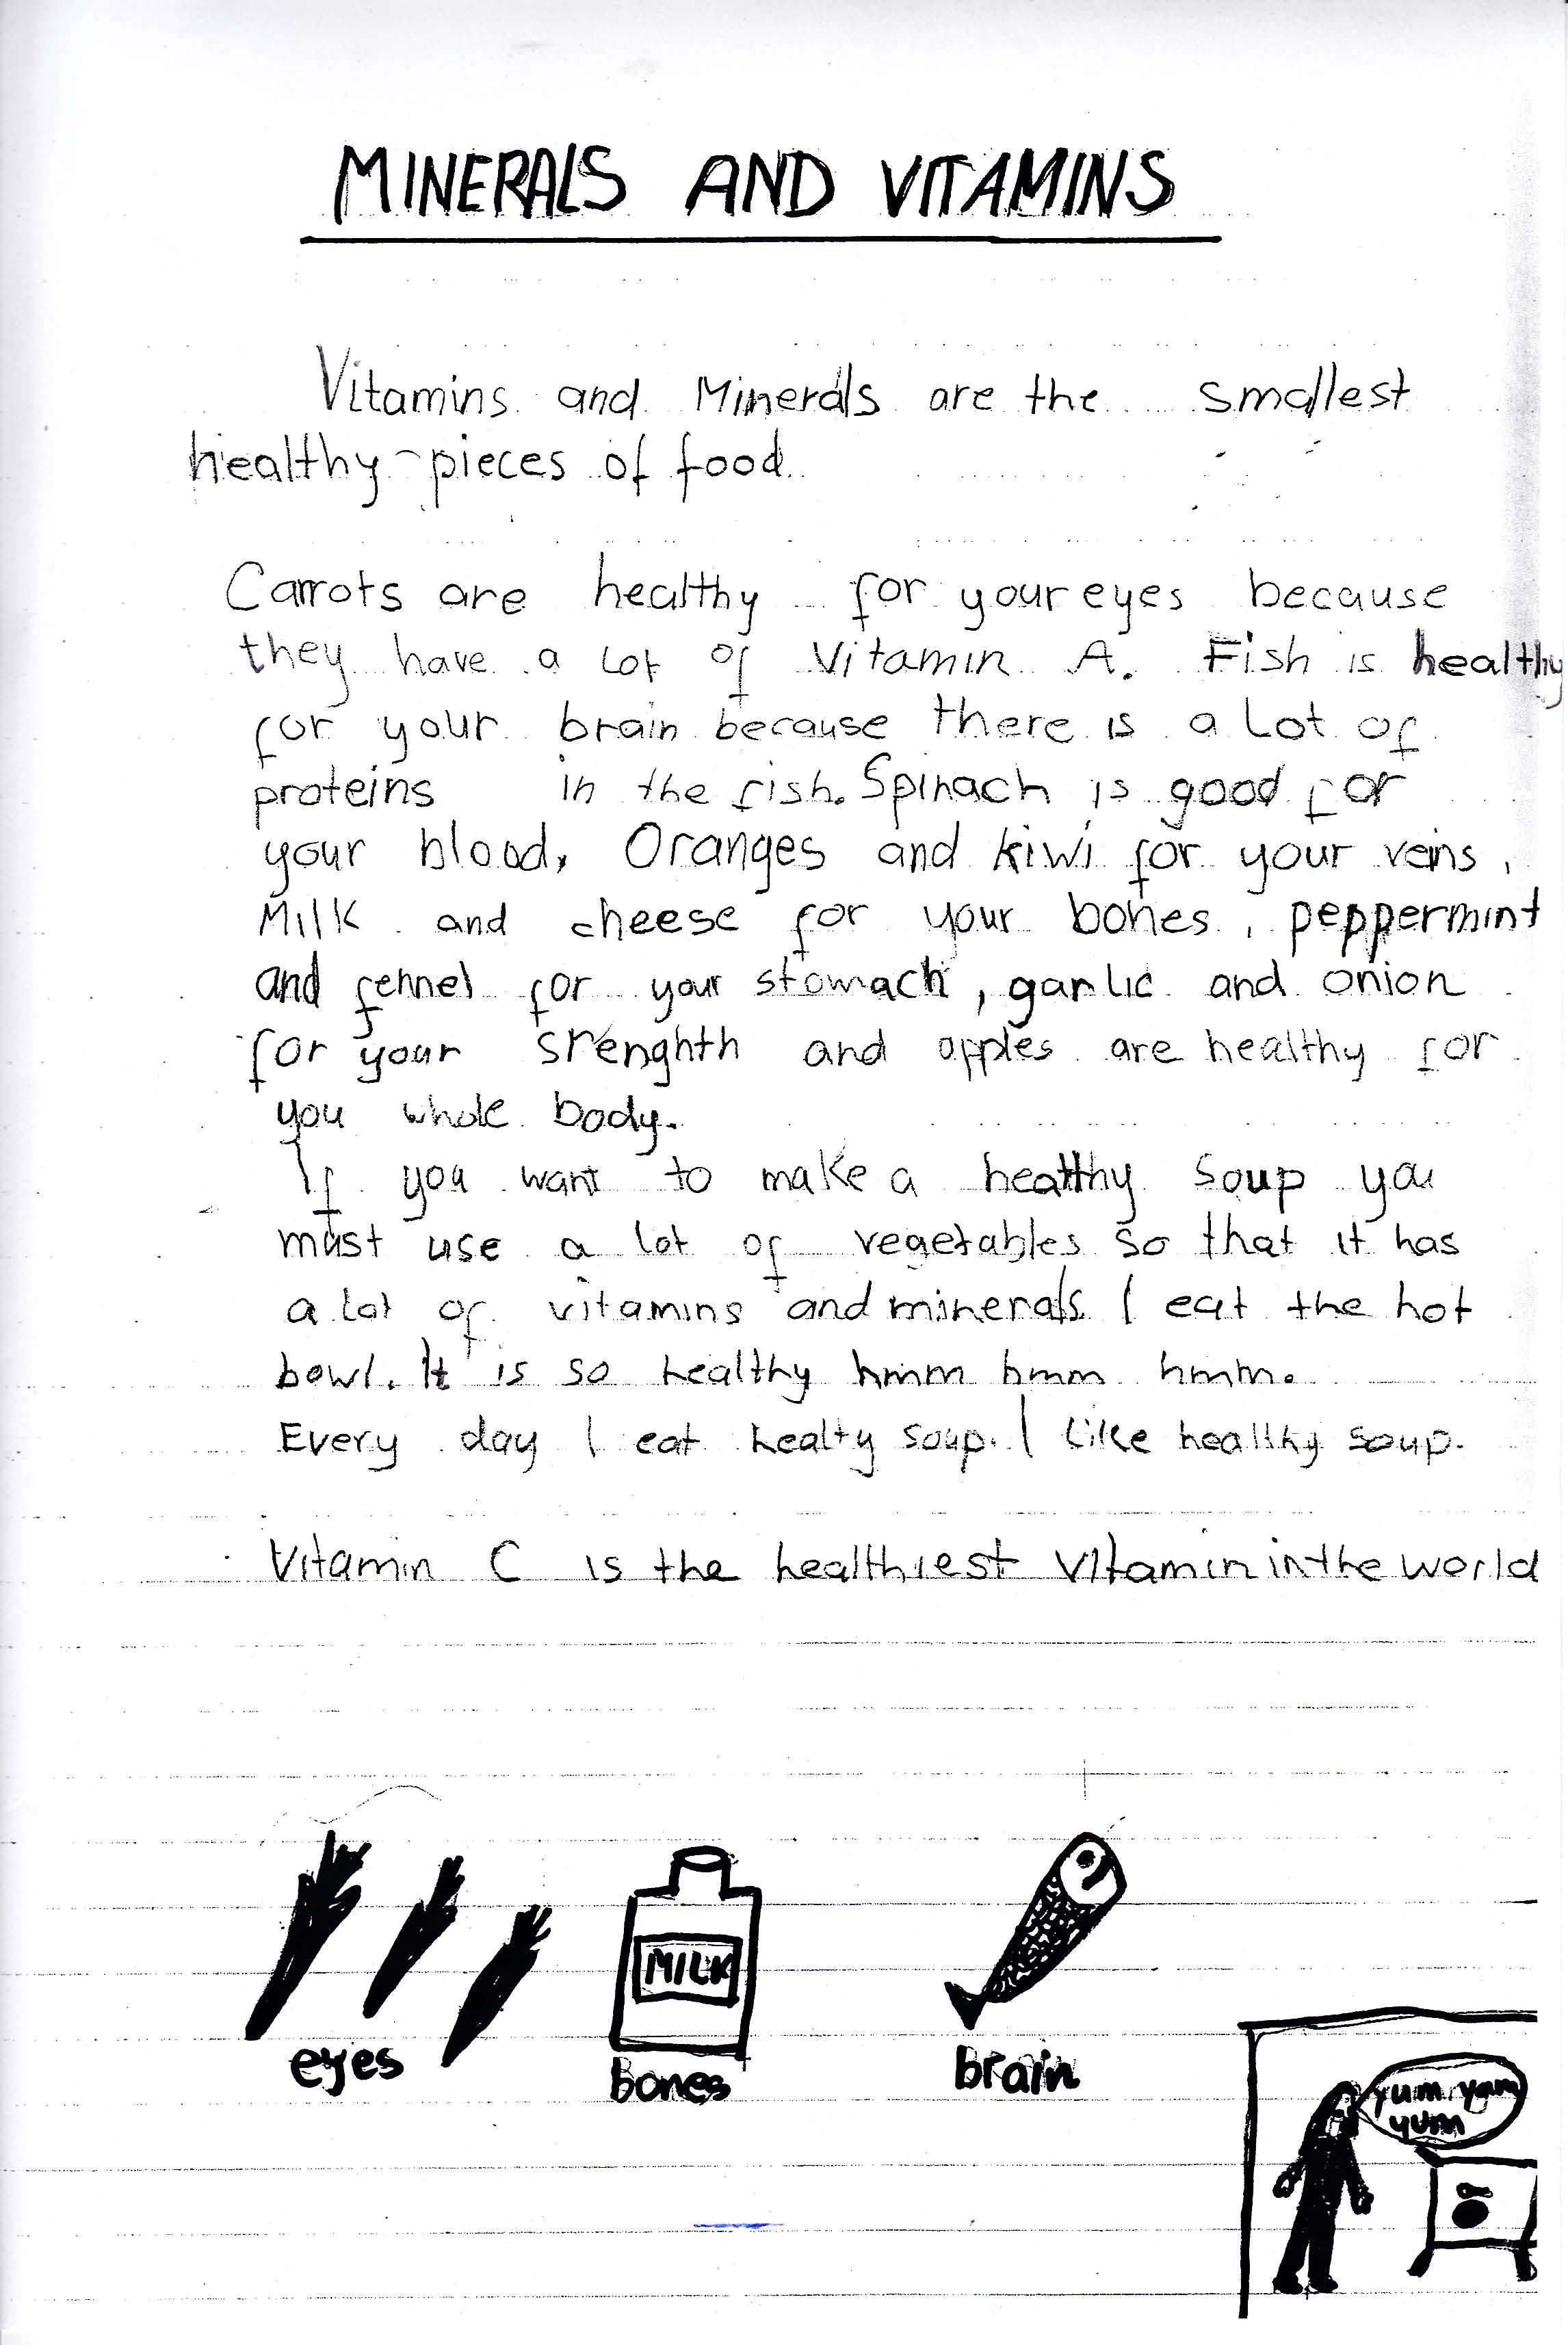 MINERALS AND VITAMINS
Vitamins and Minerals are the smallest
healthy-pieces of food
Carrots are healthy for your eyes because
they have a lot of Vitamin A. Fish is healthy
for your brain because there is a lot of
proteins in the fish. Spinach is good for
your blood, Oranges and kiwi for your veins,
Milk and cheese for your bones, peppermint
and fennel for your stomach, garlic and onion
for your strenghth and apples are healthy for
you whole body.
If you want to make a healthy soup you
must use a lot of vegetables so that it has
a lot of vitamins and minerals. I eat the hot
bowl. It is so healthy hmm hmm hmm.
Every day I eat healty soup. I like healthy soup.
Vitamin C is the healthiest Vitamin in the world
MILK
eyes
bones
brain
yum yum
yum